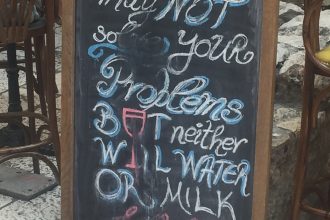 may NOT
solve YOUR
Problems
BUT neither
WILL WATER
OR MILK